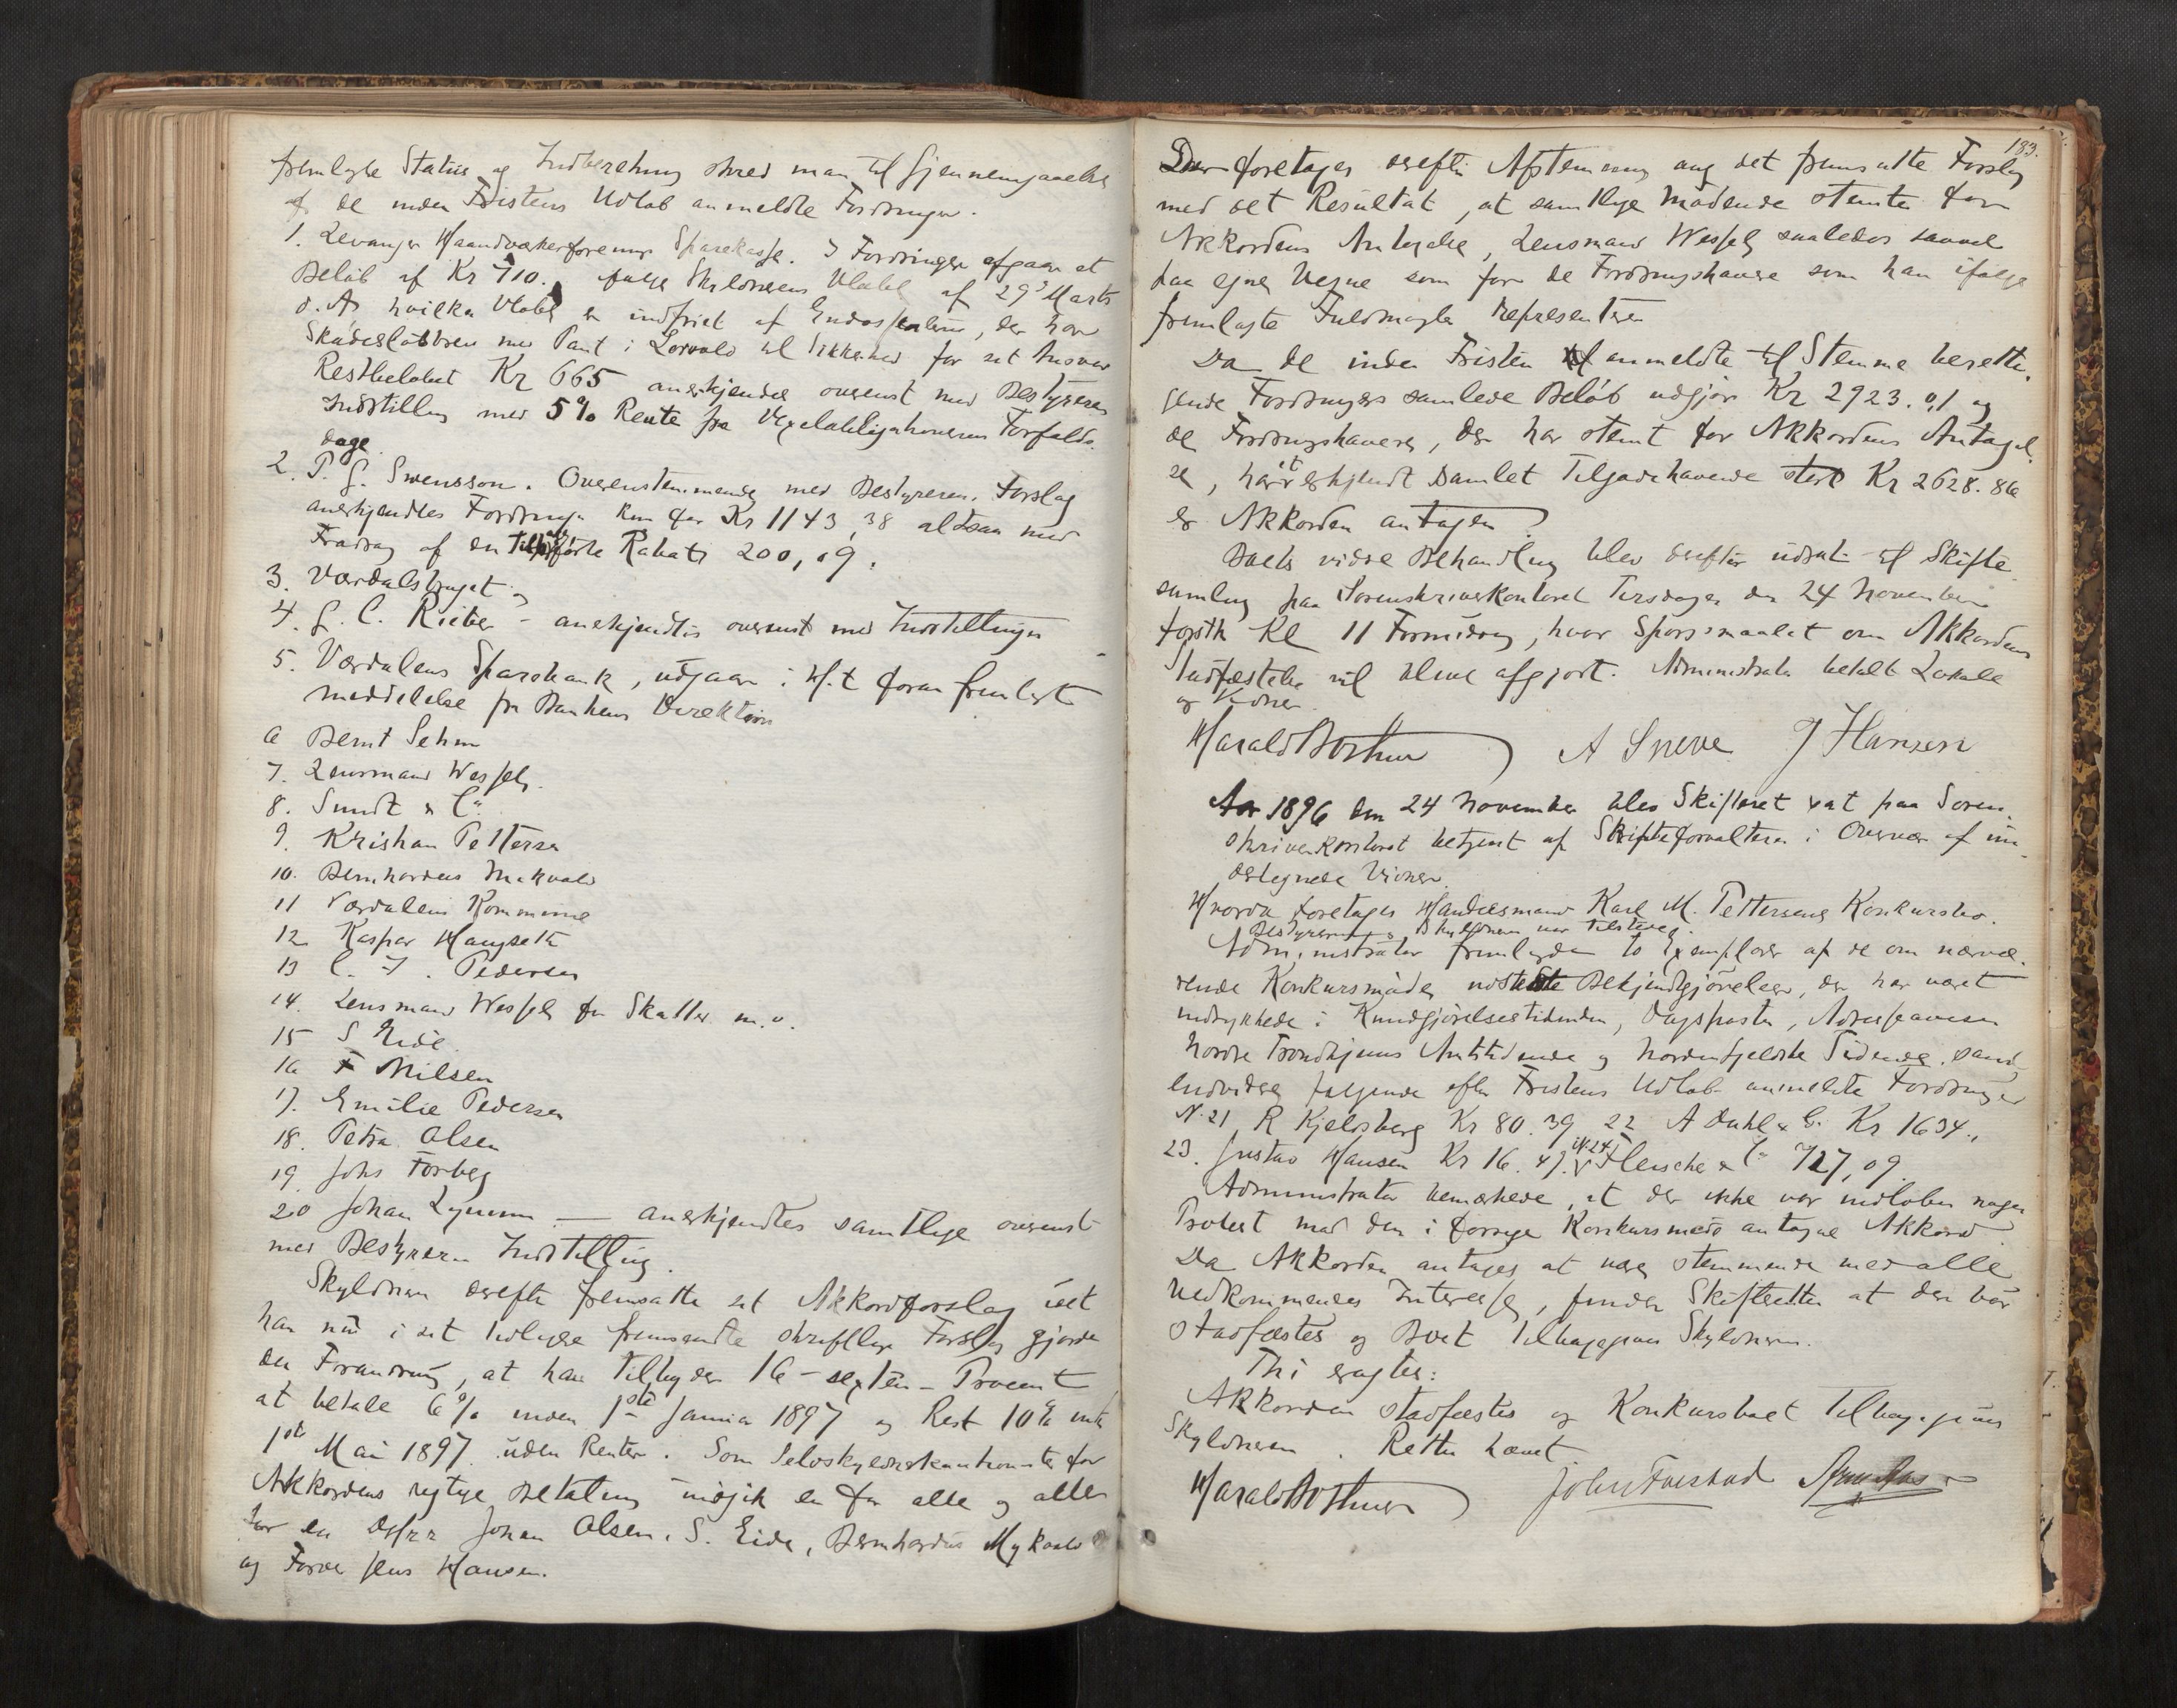 fremlagte Status og Indberetning skred man til Gjennemgaaelse
af de inden Fristens Udløb anmeldte Fordringer.
1. Levanger Haandværkerforenings Sparekasse. I Fordringen afgaar et
Beløb af Kr 710. ifølge Skyldnerens Vexel af 29de Marts
d. A. hvilken Vexel er indfriet af Endossenterne, der har
Skadesløsbrev med Pant i Løsøre til Sikkerhed for sit Ansvar
Restbeløbet Kr 665 anerkjendes overenst med Bestyrerens
Indstilling med 5% Rente fra Vexelobligationens Forfalds
dage.
2. P. G. Svensson. Overenstemmende med Bestyreren. Forslag
anerkjendtes Fordringen kun for Kr 1143,38 altsaa med
Fradrag af den tilførte Rabat 200,09.
3. Værdalsbruget og
4. G. C. Rieber - anerkjendtes overenst med Indstillingen
5. Værdalens Sparebank, udgaar i H.t foran fremlagt
meddelelse fra Bankens Direktion
6 Bernt Sehm
7. Lensmand Wessel.
8. Sundt & Co.
9. Kristian Pettersen
10. Bernhardus Mikvold
11 Værdalens Kommune
12 Kaspar Haugseth
13 C. J. Pedersen
14. Lensmand Wessel for Skatter m.v.
15 S Eide.
16 F Nilsen
17. Emilie Pedersen
18. Petra Olsen
19. Johs Forberg
20 Johan Lyumm — anerkjendtes samtlige overenst
med Bestyreren Indstilling.
Skyldneren derefter fremsatte sit Akkordforslag idet
han nu i sit tidligere fremsendte skriftlige Forslag gjorde
den Forandring, at han tilbyder 16 - sexten - Procent
at betale 6% inden 1ste Januar 1897 og Rest 10% inden
1ste Mai 1897 uden Renter. Som Selvskyldnerkautionister for
Akkordens rigtige Betaling indgik en for alle og alle
for en Johan Olsen, S. Eide, Bernhardus Mykvold
og Farver Jens Hansen.
183.
Der foretages derefter Afstemning ang det fremsatte Forslag
med det Resultat, at samtlige Mødende stemte for
Akkordens Antagelse, Lensmand Wessel saaledes saavel
paa egne Vegne som for de Fordringshavere som han ifølge
fremlagte Fuldmagter repræsenterer
Da de inden Fristen anmeldte til Stemme beretti
gende Fordringers samlede Beløb udgjør Kr 2923.01 og
de Fordringshavere, der har stemt for Akkordens Antagel
se, har et erkjendt samlet Tilgodehavende stort Kr 2628.86
er Akkorden antagen.
Boets videre Behandling blev derefter udsat til Skifte
samling paa Sorenskriverkontoret Tirsdagen den 24 November
førstk Kl 11 Formiddag, hvor Spørgsmaalet om Akkordens
Stadfæstelse vil blive afgjort. Administrator betalt Lokale
og Vidner.
Harald Bothner A Sneve J Hansen
Aar 1896 den 24 November blev Skifteret sat paa Soren
skriverkontoret betjent af Skifteforvalteren i Overvær af un
dertegnede Vidner.
Hvorda foretages Handelsmand Karl M. Pettersens Konkursbo.
Bestyreren og Skyldneren var tilstede.
Administrator fremlagde to Exemplarer af de om nærvæ
rende Konkursmøde udstedte Bekjendtgjørelser, der har været
indrykkede i Kundgjørelsestidenden, Dagsposten, Adresseavisen
Nordre Trondhjems Amtstidende og Nordenfjeldske Tidende. samt
endvidere følgende efter Fristens Udløb anmeldte Fordringer
N. 21 R Kjeldsberg Kr 80.39 22 A Dahl & Co. Kr 1634.,
23. Gustav Hansen Kr 16.47. N. 24 Fleischer & Co 727,09.
Administrator bemærkede, at der ikke var indløben nogen
Protest mod den i forrige Konkursmøde antagne Akkord.
Da Akkorden antages at være stemmende med alle
Vedkommendes Interesse, finder Skifteretten at den bør
stadfæstes og Boet tilbagegives Skyldneren.
Thi eragtes:
Akkorden stadfæstes og Konkursboet tilbagegives
Skyldneren. Retten hævet
Harald Bothner John Fuestad